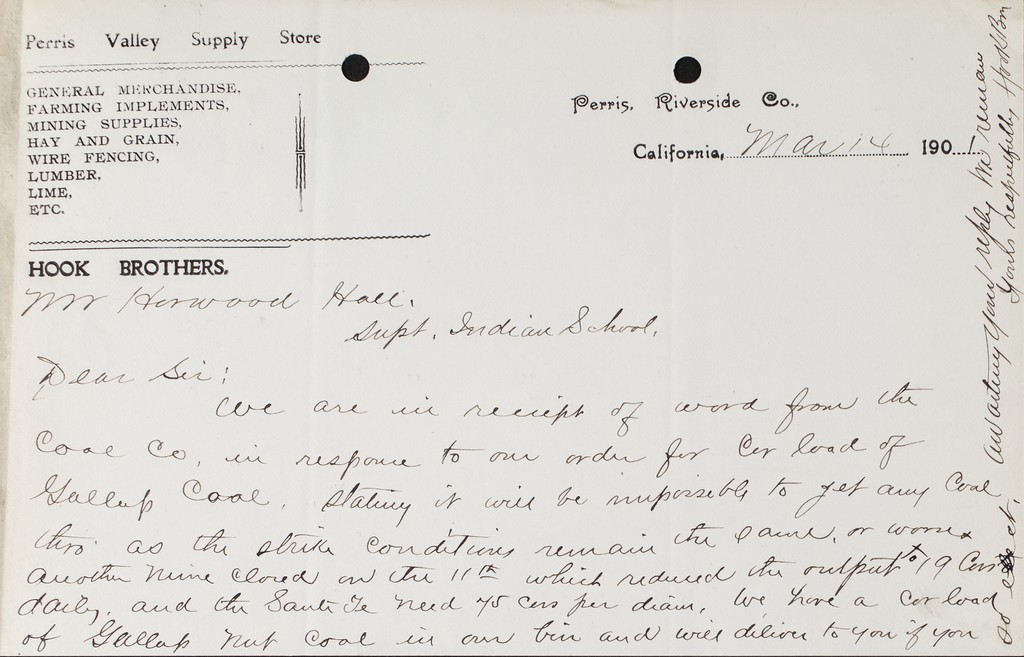 Perris Valley Supply Store
GENERAL MERCHANDISE,
FARMING IMPLEMENTS,
MINING SUPPLIES,
HAY AND GRAIN,
WIRE FENCING,
LUMBER,
LIME,
ETC.
HOOK BROTHERS.
Perris, Riverside Co.,
California, Mar 14 1901
Mr Harwood Hall.
Supt. Indian School.
Dear Sir:
We are in receipt of word from the
Coal Co, in response to our order for Car load of
Gallup Coal, stating it will be impossible to get any Coal
thro as the strike conditions remain the same, or worse.
another mine closed on the 11th which reduced the output to 19 Cars
daily, and the Santa Fe need 75 cars per diam, We have a Car load
of Gallup Nut Coal in our bin and will deliver to you if you
so elect. Awaiting your reply We remain
Yours respectfully Hook Bros